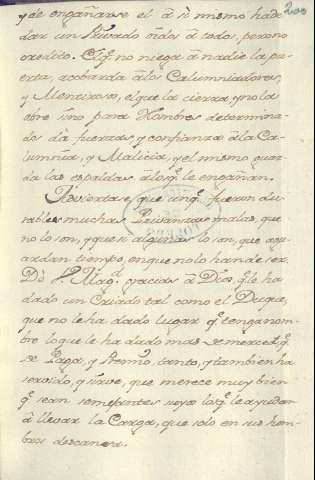 200
y de engañarse el a si mismo ha de
dar un Privado oidos à todos, pero no
credito. El q.e no niega à nadie la pu-
erta, acobarda à los Calumniadores,
y Mentiroso, el que la cierra, y no la
abre sino para Hombres determina-
dos dà fuerzas, y confianza à la Ca-
lumnia, y Malicia, y el mismo guar-
da las espaldas à los q.e le engañan.
que fueron du-
rables muchas Privanzas malas, que
no lo son, y que si algunas lo son, que agu-
ardan tiempo, en que no lo han de ser.
Dè V. Mag.d gracias à Dios, q.e le ha
dado un Criado tal como el Duque,
que no le ha dado lugar q.e tenga nom-
bre lo que le ha dado mas de merced, q.e
de Paga, y Premio, tanto, y tambien ha
servido, y sirve, que merece muy bien
q.e sean semejantes suyos los q.e le ayudan
à llevar la Carga, que solo en sus hom-
bros descansa.